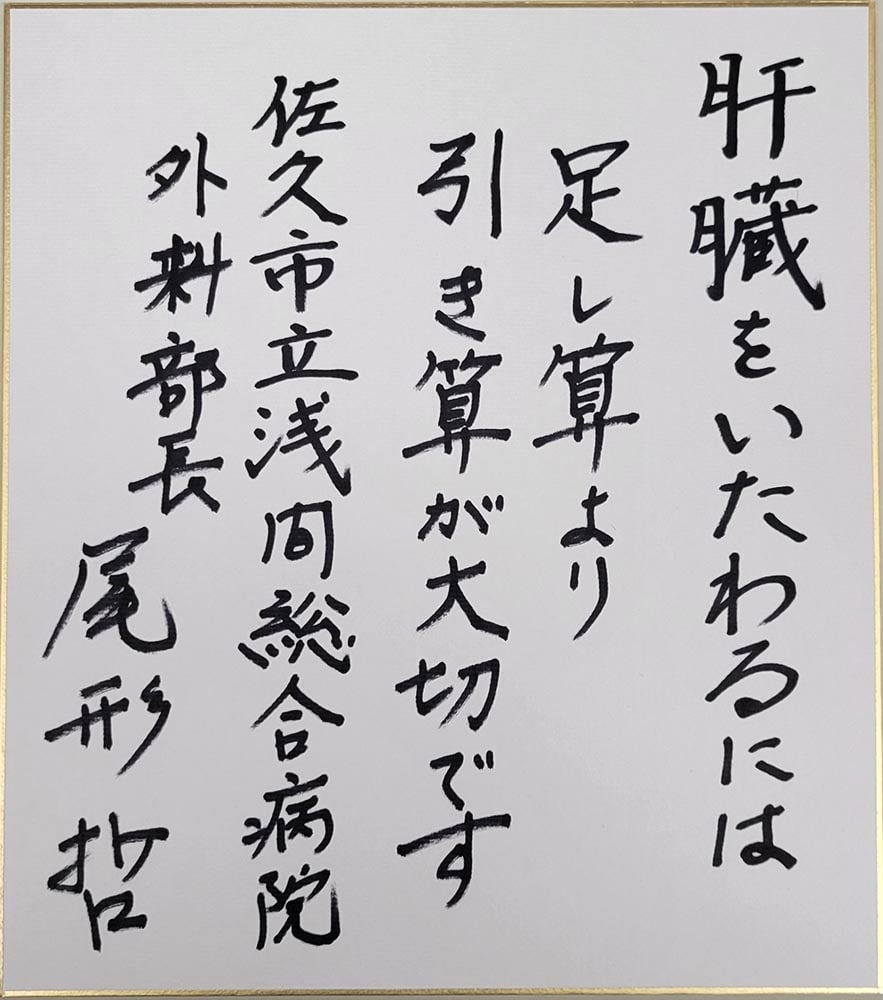 肝臓をいたわるには
足し算より
引き算が大切です
佐久市立浅間総合病院
外科部長
尾形哲